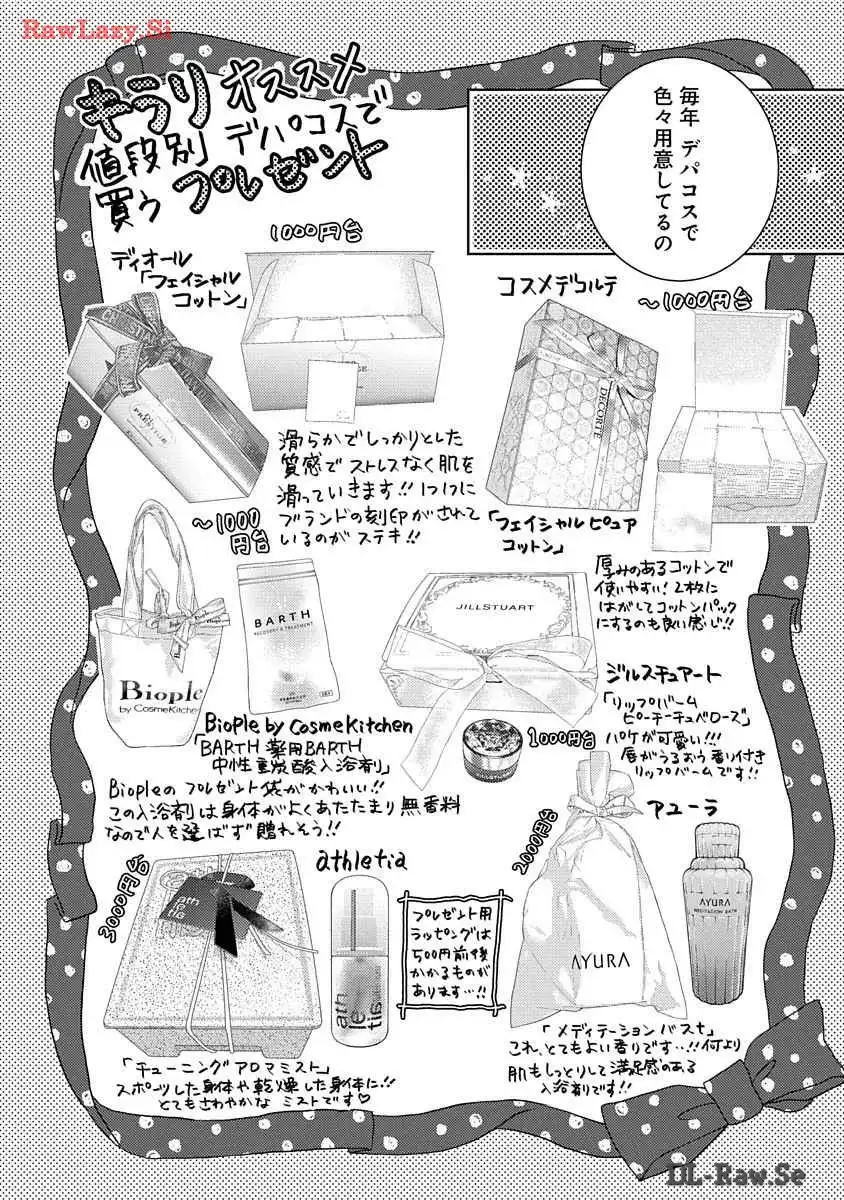 RawLazy.Si
毎年 デパコスで
色々用意してるの
キラリ オススメ
値段別 デパコスで
買う プレゼント
1000円台
ディオール
「フェイシャル
コットン」
滑らかでしっかりとした
質感で ストレスなく肌を
滑っていきます!! 1つ1つに
ブランドの刻印がされて
いるのが ステキ!!
コスメデコルテ
〜1000円台
DECORTÉ
「フェイシャル ピュア
コットン」
厚みのあるコットンで
使いやすい! 2枚に
はがしてコットンパック
にするのも良い感じ!!
〜1000
円台
Biople
by CosmeKitchen
BARTH
RECOVERY & TREATMENT
Biople by CosmeKitchen
「BARTH 薬用BARTH
中性重炭酸入浴剤」
Biopleの プレゼント袋がかわいい!!
この入浴剤は身体がよくあたたまり 無香料
なので人を選ばず 贈れそう!!
JILLSTUART
1000円台
ジルスチュアート
「リップバーム
ピーチーチュベローズ」
パケが可愛い!!!
唇がうるおう 香り付き
リップバームです!!
3000円台
athletia
ath
le
tia
「チューニングアロマミスト」
スポーツした身体や乾燥した身体に!!
とてもさわやかな ミストです♡
プレゼント用
ラッピングは
500円前後
かかるものが
あります…!!
2000円台
アユーラ
AYURA
AYURA
MEDITATION BATH
「メディテーションバスt」
これ、とてもよい香りです…!! 何より
肌もしっとりして 満足感のある
入浴剤です!!
DL-Raw.Se